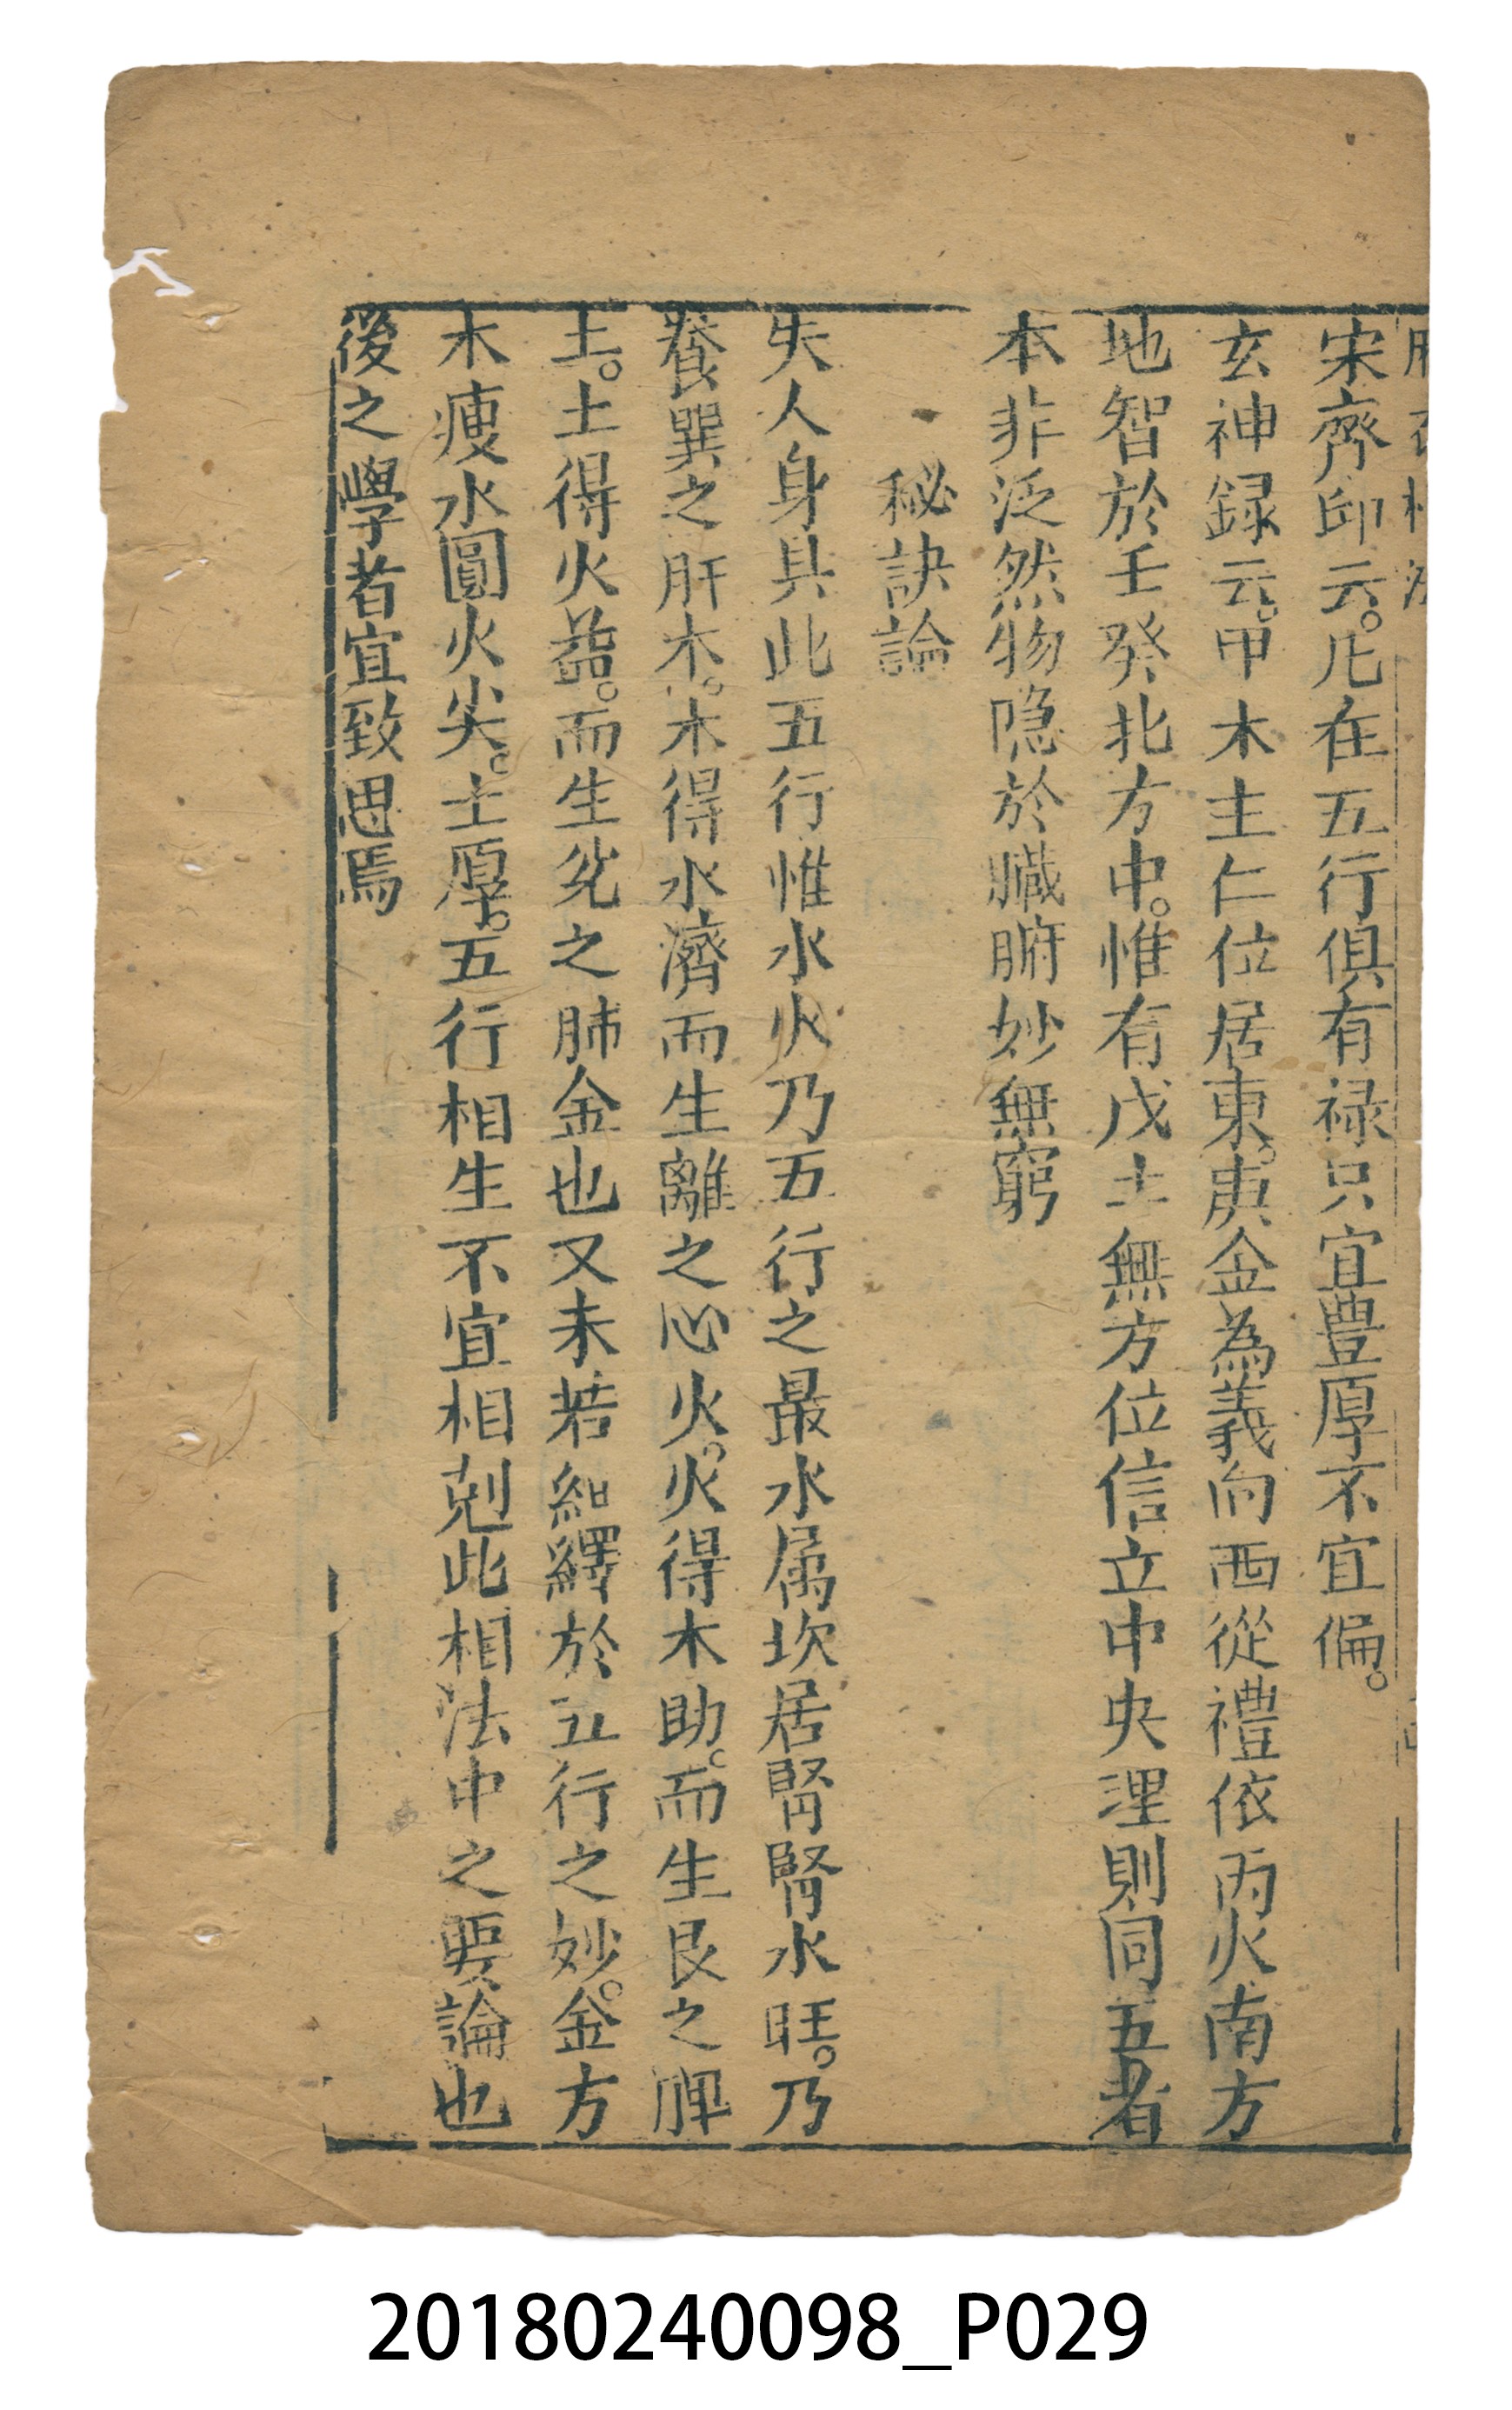 宋齊邱云。凡在五行俱有禄只宜豊厚不宜偏。
玄神録云。甲木主仁位居東。庚金為義向西從禮依丙火南方
地智於壬癸北方中。惟有戊土無方位信立中央理則同五者
本非泛然物隐於臟腑妙無窮
秘訣論
夫人身具此五行惟水火乃五行之最水属坎居腎腎水旺。乃
養巽之肝木。木得水濟而生離之心火。火得木助。而生艮之脾
土。土得火益。而生兊之肺金也又未若紬繹於五行之妙。金方
木瘦水圓火尖。土厚。五行相生不宜相剋此相法中之要論也
後之學者宜致思焉
20180240098_P029